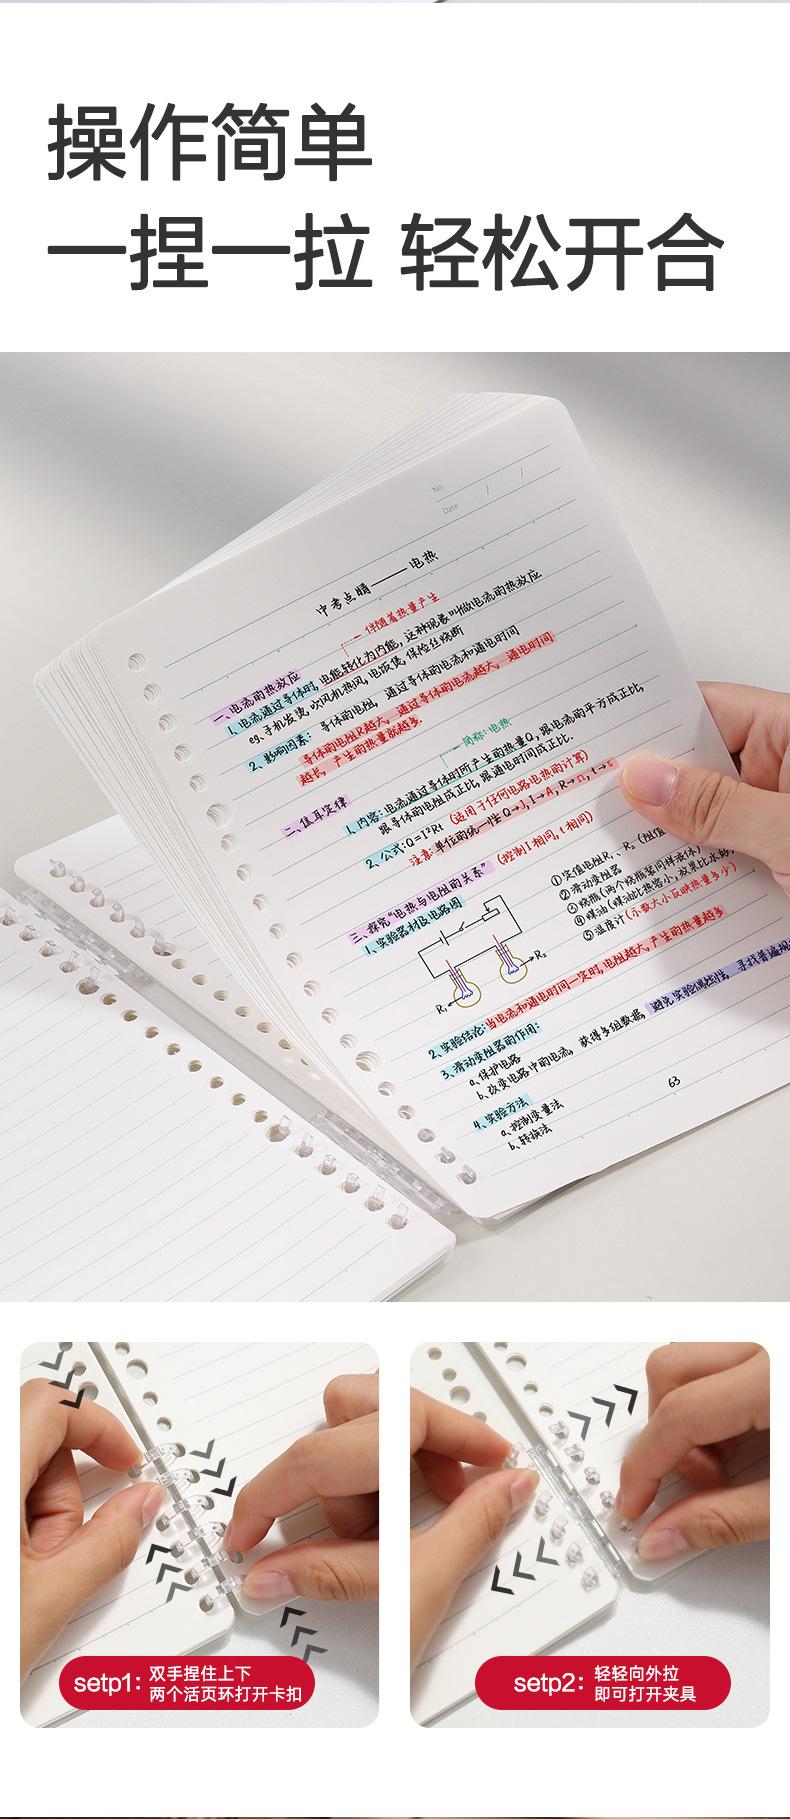 操作简单
一捏一拉 轻松开合
No.
Date / /
中考点睛——电热
伴随着热量产生
一、电流的热效应
1、电流通过导体时,电能转化为内能,这种现象叫做电流的热效应
eg.手机发烫,吹风机热风,电饭煲,保险丝烧断
2、影响因素:导体的电阻,通过导体的电流和通电时间
导体的电阻R越大,通过导体的电流越大,通电时间
越长,产生的热量就越多.
简称:电热
二、焦耳定律
1、内容:电流通过导体时所产生的热量Q,跟电流的平方成正比,
跟导体的电阻成正比,跟通电时间成正比.
2、公式:Q=I²Rt (适用于任何电路电热的计算)
注意:单位的统一性 Q→J,I→A,R→Ω,t→s
三、探究“电热与电阻的关系” (控制I相同,t相同)
1、实验器材及电路图
①定值电阻R₁、R₂(阻值
②滑动变阻器
③烧瓶(两个烧瓶装同样液体)
④煤油(煤油比热容小,效果比水明
⑤温度计(示数大小反映热量多少)
R₁
R₂
2、实验结论:当电流和通电时间一定时,电阻越大,产生的热量越多
3、滑动变阻器的作用:
a、保护电路
b、改变电路中的电流,获得多组数据,避免实验偶然性,寻找普遍规
4、实验方法
a、控制变量法
b、转换法
63
setp1: 双手捏住上下
两个活页环打开卡扣
setp2: 轻轻向外拉
即可打开夹具